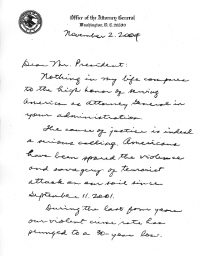 Office of the Attorney General
Washington, D. C. 20530
November 2, 2004
Dear Mr. President:
Nothing in my life compares
to the high honor of serving
America as Attorney General in
your administration.
The cause of justice is indeed
a serious calling. Americans
have been spared the violence
and savagery of terrorist
attack on our soil since
September 11, 2001.
During the last four years
our violent crime rate has
plunged to a 30-year low.